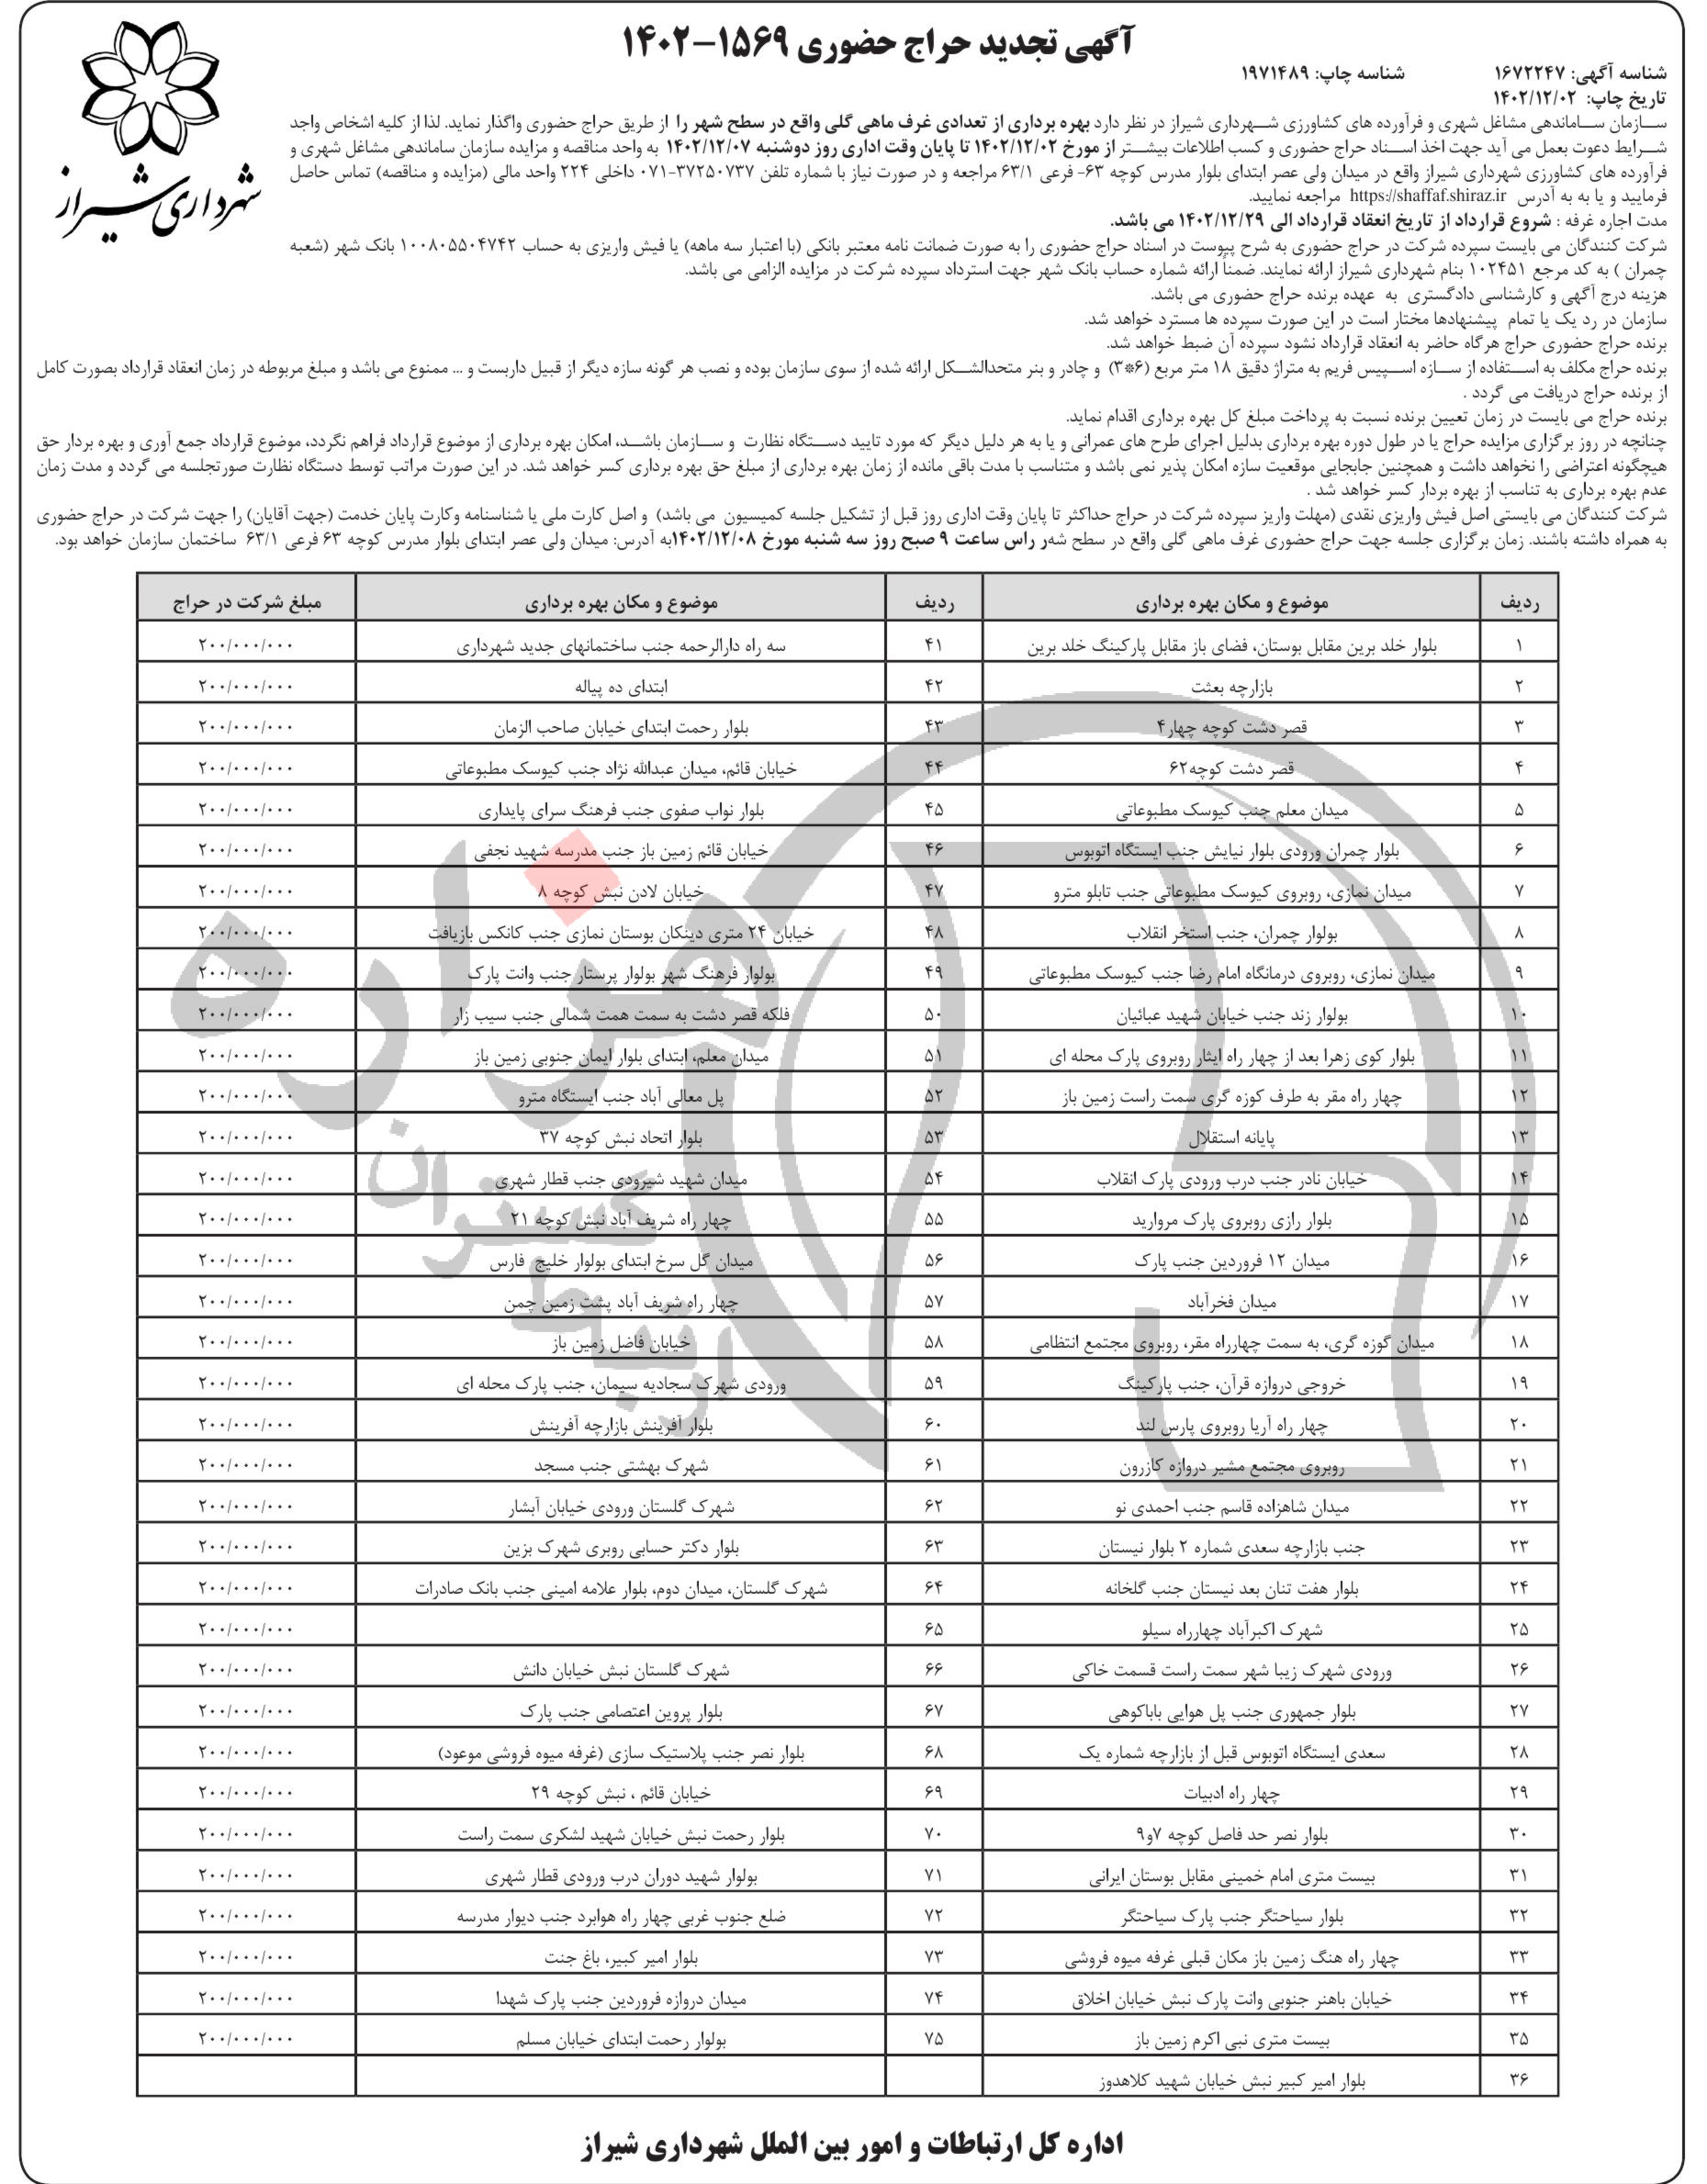 آگهی تجدید حراج حضوری ۱۵۶۹-۱۴۰۲
شناسه آگهی: ۱۶۷۲۲۴۷ شناسه چاپ: ۱۹۷۱۴۸۹
تاریخ چاپ: ۱۴۰۲/۱۲/۰۲
شهرداری شیراز
سازمان ساماندهی مشاغل شهری و فرآورده های کشاورزی شهرداری شیراز در نظر دارد بهره برداری از تعدادی غرف ماهی گلی واقع در سطح شهر را از طریق حراج حضوری واگذار نماید. لذا از کلیه اشخاص واجد
شرایط دعوت بعمل می آید جهت اخذ اسناد حراج حضوری و کسب اطلاعات بیشتر از مورخ ۱۴۰۲/۱۲/۰۲ تا پایان وقت اداری روز دوشنبه ۱۴۰۲/۱۲/۰۷ به واحد مناقصه و مزایده سازمان ساماندهی مشاغل شهری و
فرآورده های کشاورزی شهرداری شیراز واقع در میدان ولی عصر ابتدای بلوار مدرس کوچه ۶۳- فرعی ۶۳/۱ مراجعه و در صورت نیاز با شماره تلفن ۳۷۲۵۰۷۳۷-۰۷۱ داخلی ۲۲۴ واحد مالی (مزایده و مناقصه) تماس حاصل
فرمایید و یا به به آدرس https://shaffaf.shiraz.ir مراجعه نمایید.
مدت اجاره غرفه : شروع قرارداد از تاریخ انعقاد قرارداد الی ۱۴۰۲/۱۲/۲۹ می باشد.
شرکت کنندگان می بایست سپرده شرکت در حراج حضوری به شرح پیوست در اسناد حراج حضوری را به صورت ضمانت نامه معتبر بانکی (با اعتبار سه ماهه) یا فیش واریزی به حساب ۱۰۰۸۰۵۵۰۴۷۴۲ بانک شهر (شعبه
چمران ) به کد مرجع ۱۰۲۴۵۱ بنام شهرداری شیراز ارائه نمایند. ضمناً ارائه شماره حساب بانک شهر جهت استرداد سپرده شرکت در مزایده الزامی می باشد.
هزینه درج آگهی و کارشناسی دادگستری به عهده برنده حراج حضوری می باشد.
سازمان در رد یک یا تمام پیشنهادها مختار است در این صورت سپرده ها مسترد خواهد شد.
برنده حراج حضوری حراج هرگاه حاضر به انعقاد قرارداد نشود سپرده آن ضبط خواهد شد.
برنده حراج مکلف به استفاده از سازه اسپیس فریم به متراژ دقیق ۱۸ متر مربع (۶*۳) و چادر و بنر متحدالشکل ارائه شده از سوی سازمان بوده و نصب هر گونه سازه دیگر از قبیل داربست و ... ممنوع می باشد و مبلغ مربوطه در زمان انعقاد قرارداد بصورت کامل
از برنده حراج دریافت می گردد .
برنده حراج می بایست در زمان تعیین برنده نسبت به پرداخت مبلغ کل بهره برداری اقدام نماید.
چنانچه در روز برگزاری مزایده حراج یا در طول دوره بهره برداری بدلیل اجرای طرح های عمرانی و یا به هر دلیل دیگر که مورد تایید دستگاه نظارت و سازمان باشد، امکان بهره برداری از موضوع قرارداد فراهم نگردد، موضوع قرارداد جمع آوری و بهره بردار حق
هیچگونه اعتراضی را نخواهد داشت و همچنین جابجایی موقعیت سازه امکان پذیر نمی باشد و متناسب با مدت باقی مانده از زمان بهره برداری از مبلغ حق بهره برداری کسر خواهد شد. در این صورت مراتب توسط دستگاه نظارت صورتجلسه می گردد و مدت زمان
عدم بهره برداری به تناسب از بهره بردار کسر خواهد شد .
شرکت کنندگان می بایستی اصل فیش واریزی نقدی (مهلت واریز سپرده شرکت در حراج حداکثر تا پایان وقت اداری روز قبل از تشکیل جلسه کمیسیون می باشد) و اصل کارت ملی یا شناسنامه وکارت پایان خدمت (جهت آقایان) را جهت شرکت در حراج حضوری
به همراه داشته باشند. زمان برگزاری جلسه جهت حراج حضوری غرف ماهی گلی واقع در سطح شهر راس ساعت ۹ صبح روز سه شنبه مورخ ۱۴۰۲/۱۲/۰۸به آدرس: میدان ولی عصر ابتدای بلوار مدرس کوچه ۶۳ فرعی ۶۳/۱ ساختمان سازمان خواهد بود.
ردیف موضوع و مکان بهره برداری ردیف موضوع و مکان بهره برداری مبلغ شرکت در حراج
۱ بلوار خلد برین مقابل بوستان، فضای باز مقابل پارکینگ خلد برین ۴۱ سه راه دارالرحمه جنب ساختمانهای جدید شهرداری ۲۰۰/۰۰۰/۰۰۰
۲ بازارچه بعثت ۴۲ ابتدای ده پیاله ۲۰۰/۰۰۰/۰۰۰
۳ قصر دشت کوچه چهار۴ ۴۳ بلوار رحمت ابتدای خیابان صاحب الزمان ۲۰۰/۰۰۰/۰۰۰
۴ قصر دشت کوچه۶۲ ۴۴ خیابان قائم، میدان عبدالله نژاد جنب کیوسک مطبوعاتی ۲۰۰/۰۰۰/۰۰۰
۵ میدان معلم جنب کیوسک مطبوعاتی ۴۵ بلوار نواب صفوی جنب فرهنگ سرای پایداری ۲۰۰/۰۰۰/۰۰۰
۶ بلوار چمران ورودی بلوار نیایش جنب ایستگاه اتوبوس ۴۶ خیابان قائم زمین باز جنب مدرسه شهید نجفی ۲۰۰/۰۰۰/۰۰۰
۷ میدان نمازی، روبروی کیوسک مطبوعاتی جنب تابلو مترو ۴۷ خیابان لادن نبش کوچه ۸ ۲۰۰/۰۰۰/۰۰۰
۸ بولوار چمران، جنب استخر انقلاب ۴۸ خیابان ۲۴ متری دینکان بوستان نمازی جنب کانکس بازیافت ۲۰۰/۰۰۰/۰۰۰
۹ میدان نمازی، روبروی درمانگاه امام رضا جنب کیوسک مطبوعاتی ۴۹ بولوار فرهنگ شهر بولوار پرستار جنب وانت پارک ۲۰۰/۰۰۰/۰۰۰
۱۰ بولوار زند جنب خیابان شهید عبائیان ۵۰ فلکه قصر دشت به سمت همت شمالی جنب سیب زار ۲۰۰/۰۰۰/۰۰۰
۱۱ بلوار کوی زهرا بعد از چهار راه ایثار روبروی پارک محله ای ۵۱ میدان معلم، ابتدای بلوار ایمان جنوبی زمین باز ۲۰۰/۰۰۰/۰۰۰
۱۲ چهار راه مقر به طرف کوزه گری سمت راست زمین باز ۵۲ پل معالی آباد جنب ایستگاه مترو ۲۰۰/۰۰۰/۰۰۰
۱۳ پایانه استقلال ۵۳ بلوار اتحاد نبش کوچه ۳۷ ۲۰۰/۰۰۰/۰۰۰
۱۴ خیابان نادر جنب درب ورودی پارک انقلاب ۵۴ میدان شهید شیرودی جنب قطار شهری ۲۰۰/۰۰۰/۰۰۰
۱۵ بلوار رازی روبروی پارک مروارید ۵۵ چهار راه شریف آباد نبش کوچه ۲۱ ۲۰۰/۰۰۰/۰۰۰
۱۶ میدان ۱۲ فروردین جنب پارک ۵۶ میدان گل سرخ ابتدای بولوار خلیج فارس ۲۰۰/۰۰۰/۰۰۰
۱۷ میدان فخرآباد ۵۷ چهار راه شریف آباد پشت زمین چمن ۲۰۰/۰۰۰/۰۰۰
۱۸ میدان گوزه گری، به سمت چهارراه مقر، روبروی مجتمع انتظامی ۵۸ خیابان فاضل زمین باز ۲۰۰/۰۰۰/۰۰۰
۱۹ خروجی دروازه قرآن، جنب پارکینگ ۵۹ ورودی شهرک سجادیه سیمان، جنب پارک محله ای ۲۰۰/۰۰۰/۰۰۰
۲۰ چهار راه آریا روبروی پارس لند ۶۰ بلوار آفرینش بازارچه آفرینش ۲۰۰/۰۰۰/۰۰۰
۲۱ روبروی مجتمع مشیر دروازه کازرون ۶۱ شهرک بهشتی جنب مسجد ۲۰۰/۰۰۰/۰۰۰
۲۲ میدان شاهزاده قاسم جنب احمدی نو ۶۲ شهرک گلستان ورودی خیابان آبشار ۲۰۰/۰۰۰/۰۰۰
۲۳ جنب بازارچه سعدی شماره ۲ بلوار نیستان ۶۳ بلوار دکتر حسابی روبری شهرک بزین ۲۰۰/۰۰۰/۰۰۰
۲۴ بلوار هفت تنان بعد نیستان جنب گلخانه ۶۴ شهرک گلستان، میدان دوم، بلوار علامه امینی جنب بانک صادرات ۲۰۰/۰۰۰/۰۰۰
۲۵ شهرک اکبرآباد چهارراه سیلو ۶۵ ۲۰۰/۰۰۰/۰۰۰
۲۶ ورودی شهرک زیبا شهر سمت راست قسمت خاکی ۶۶ شهرک گلستان نبش خیابان دانش ۲۰۰/۰۰۰/۰۰۰
۲۷ بلوار جمهوری جنب پل هوایی باباکوهی ۶۷ بلوار پروین اعتصامی جنب پارک ۲۰۰/۰۰۰/۰۰۰
۲۸ سعدی ایستگاه اتوبوس قبل از بازارچه شماره یک ۶۸ بلوار نصر جنب پلاستیک سازی (غرفه میوه فروشی موعود) ۲۰۰/۰۰۰/۰۰۰
۲۹ چهار راه ادبیات ۶۹ خیابان قائم ، نبش کوچه ۲۹ ۲۰۰/۰۰۰/۰۰۰
۳۰ بلوار نصر حد فاصل کوچه ۷و۹ ۷۰ بلوار رحمت نبش خیابان شهید لشکری سمت راست ۲۰۰/۰۰۰/۰۰۰
۳۱ بیست متری امام خمینی مقابل بوستان ایرانی ۷۱ بولوار شهید دوران درب ورودی قطار شهری ۲۰۰/۰۰۰/۰۰۰
۳۲ بلوار سیاحتگر جنب پارک سیاحتگر ۷۲ ضلع جنوب غربی چهار راه هوابرد جنب دیوار مدرسه ۲۰۰/۰۰۰/۰۰۰
۳۳ چهار راه هنگ زمین باز مکان قبلی غرفه میوه فروشی ۷۳ بلوار امیر کبیر، باغ جنت ۲۰۰/۰۰۰/۰۰۰
۳۴ خیابان باهنر جنوبی وانت پارک نبش خیابان اخلاق ۷۴ میدان دروازه فروردین جنب پارک شهدا ۲۰۰/۰۰۰/۰۰۰
۳۵ بیست متری نبی اکرم زمین باز ۷۵ بولوار رحمت ابتدای خیابان مسلم ۲۰۰/۰۰۰/۰۰۰
۳۶ بلوار امیر کبیر نبش خیابان شهید کلاهدوز
هزاره
گستران
ارتباط
اداره کل ارتباطات و امور بین الملل شهرداری شیراز